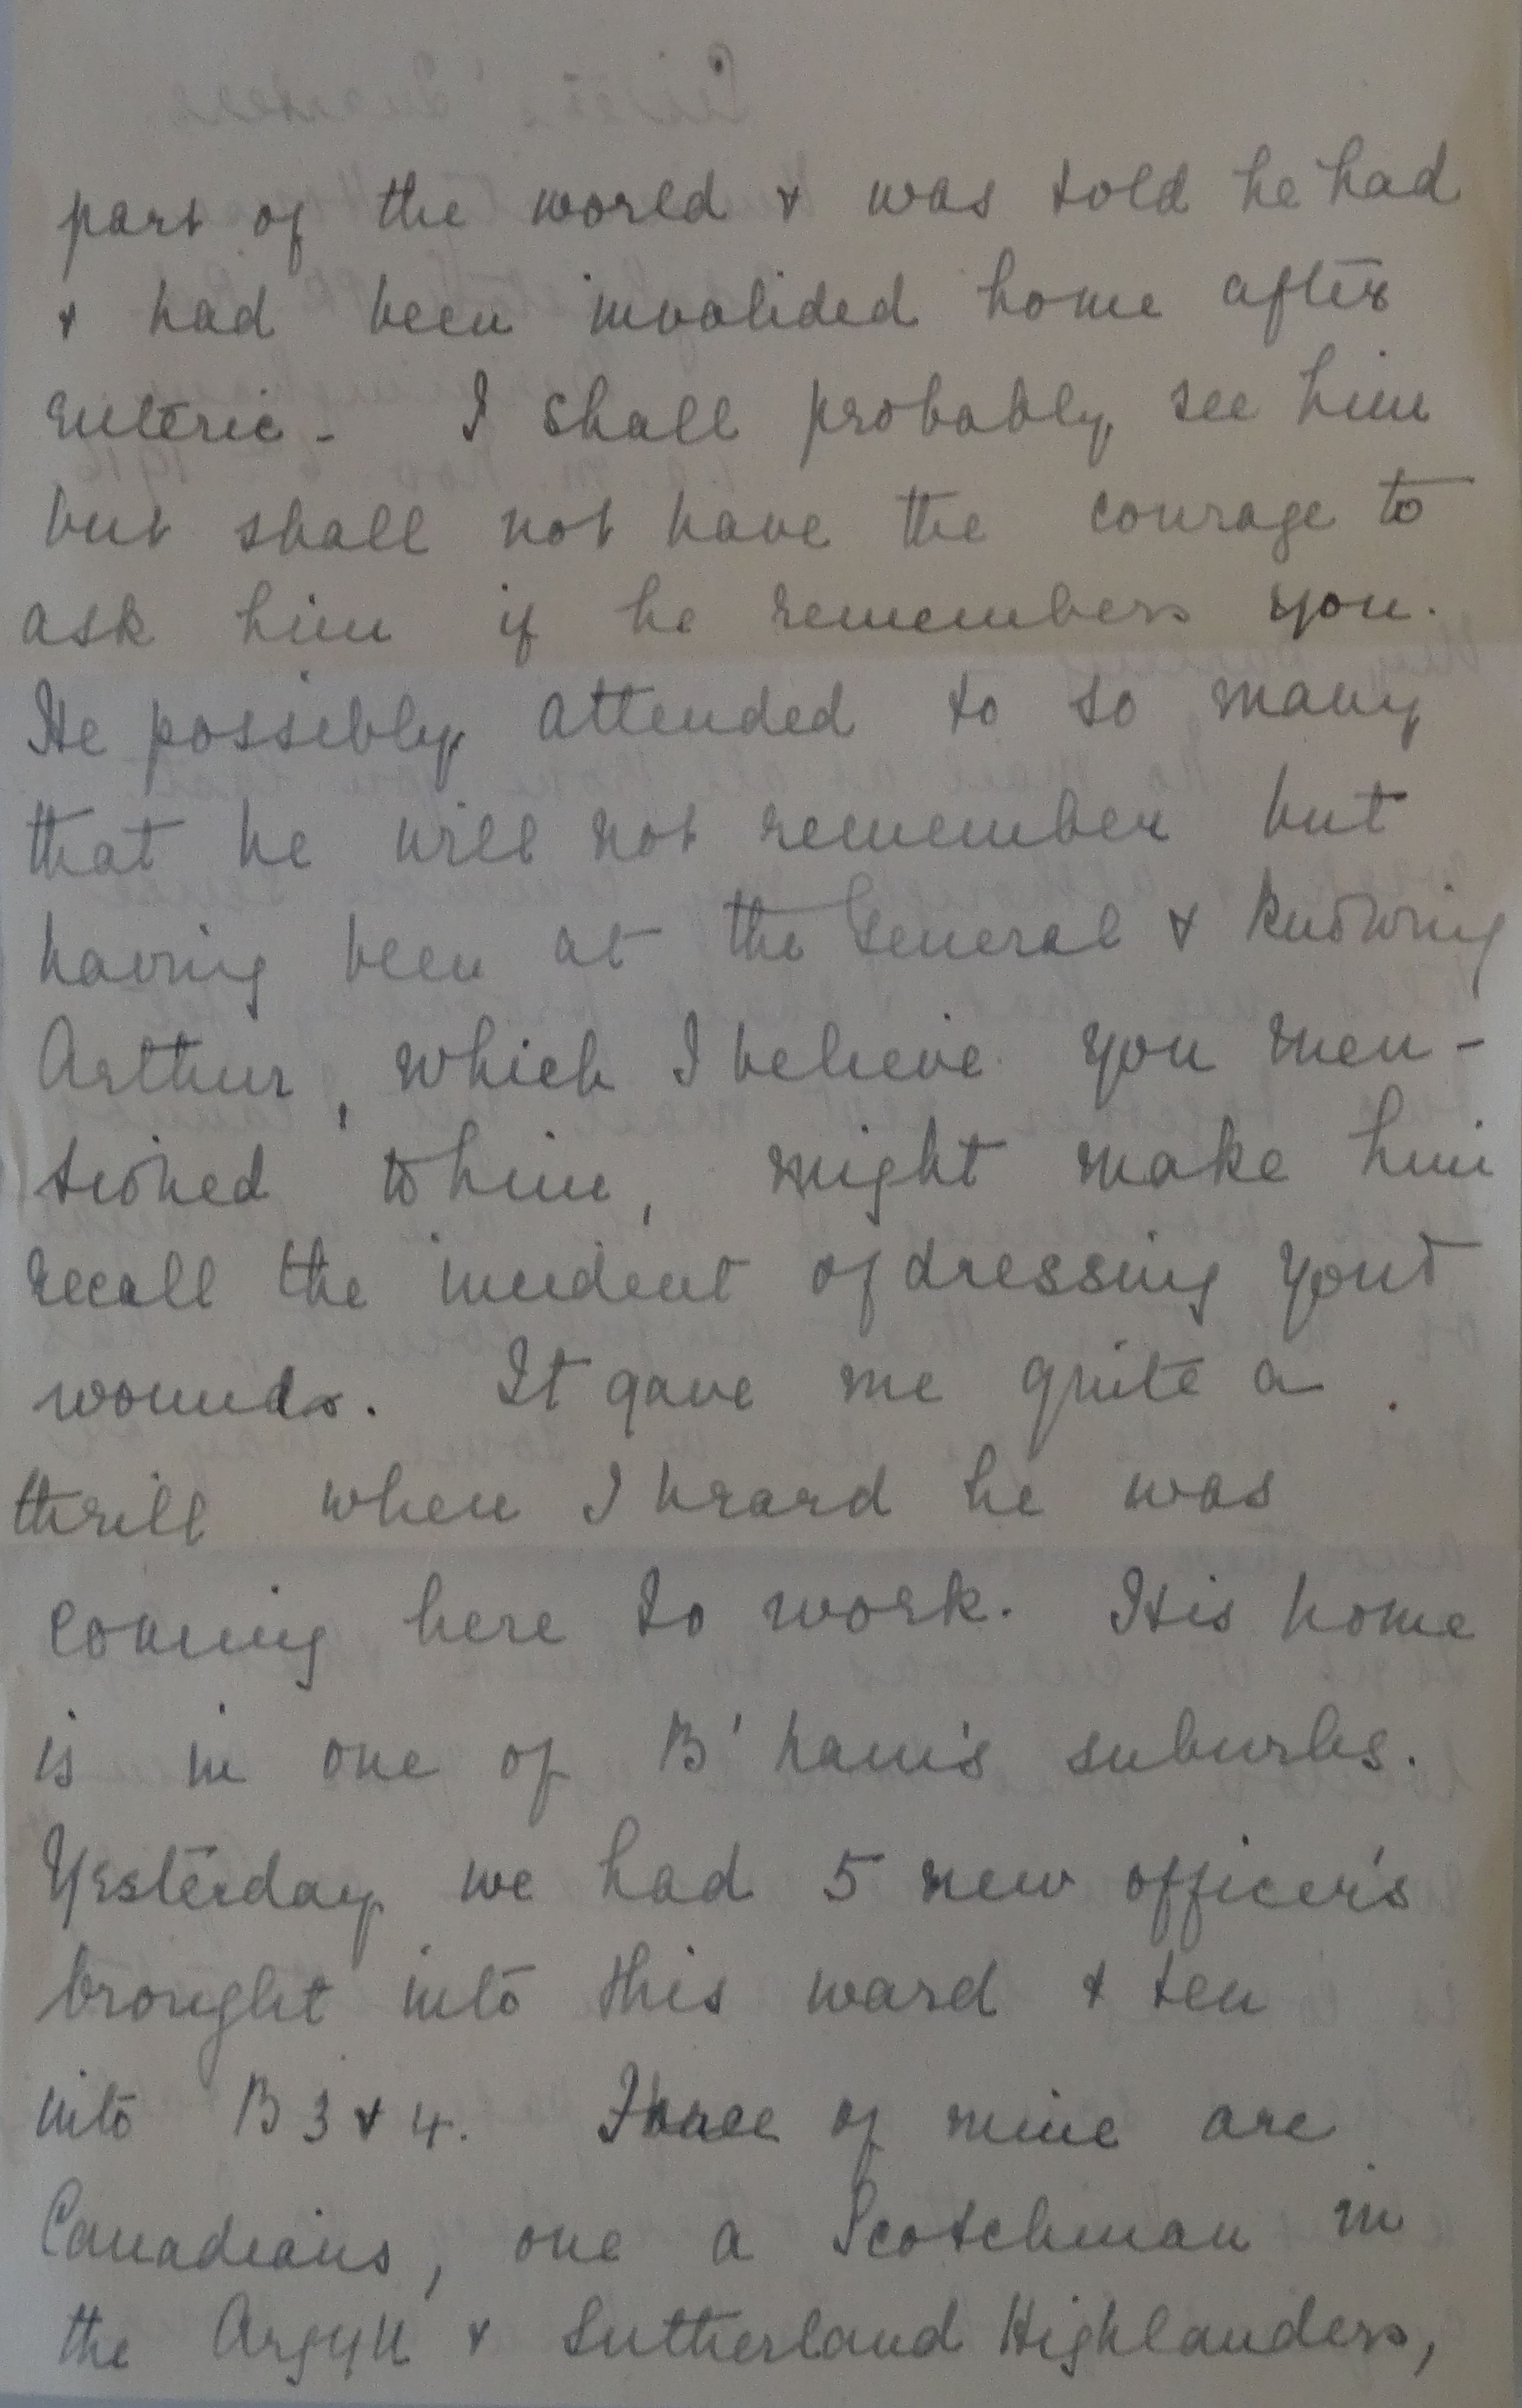 part of the world & was told he had
& had been invalided home after
enteric - I shall probably see him
but shall not have the courage to
ask him if he remembers you.
He possibly attended to so many
that he will not remember but
having been at the General & knowing
Arthur, which I believe you men-
tioned to him, might make him
recall the incident of dressing your
wounds. It gave me quite a
thrill when I heard he was
coming here to work. His home
is in one of B'ham's suburbs.
Yesterday we had 5 new officer's
brought into this ward & ten
into B 3 & 4. Three of mine are
Canadians, one a Scotchman in
the Argyll & Sutherland Highlanders,